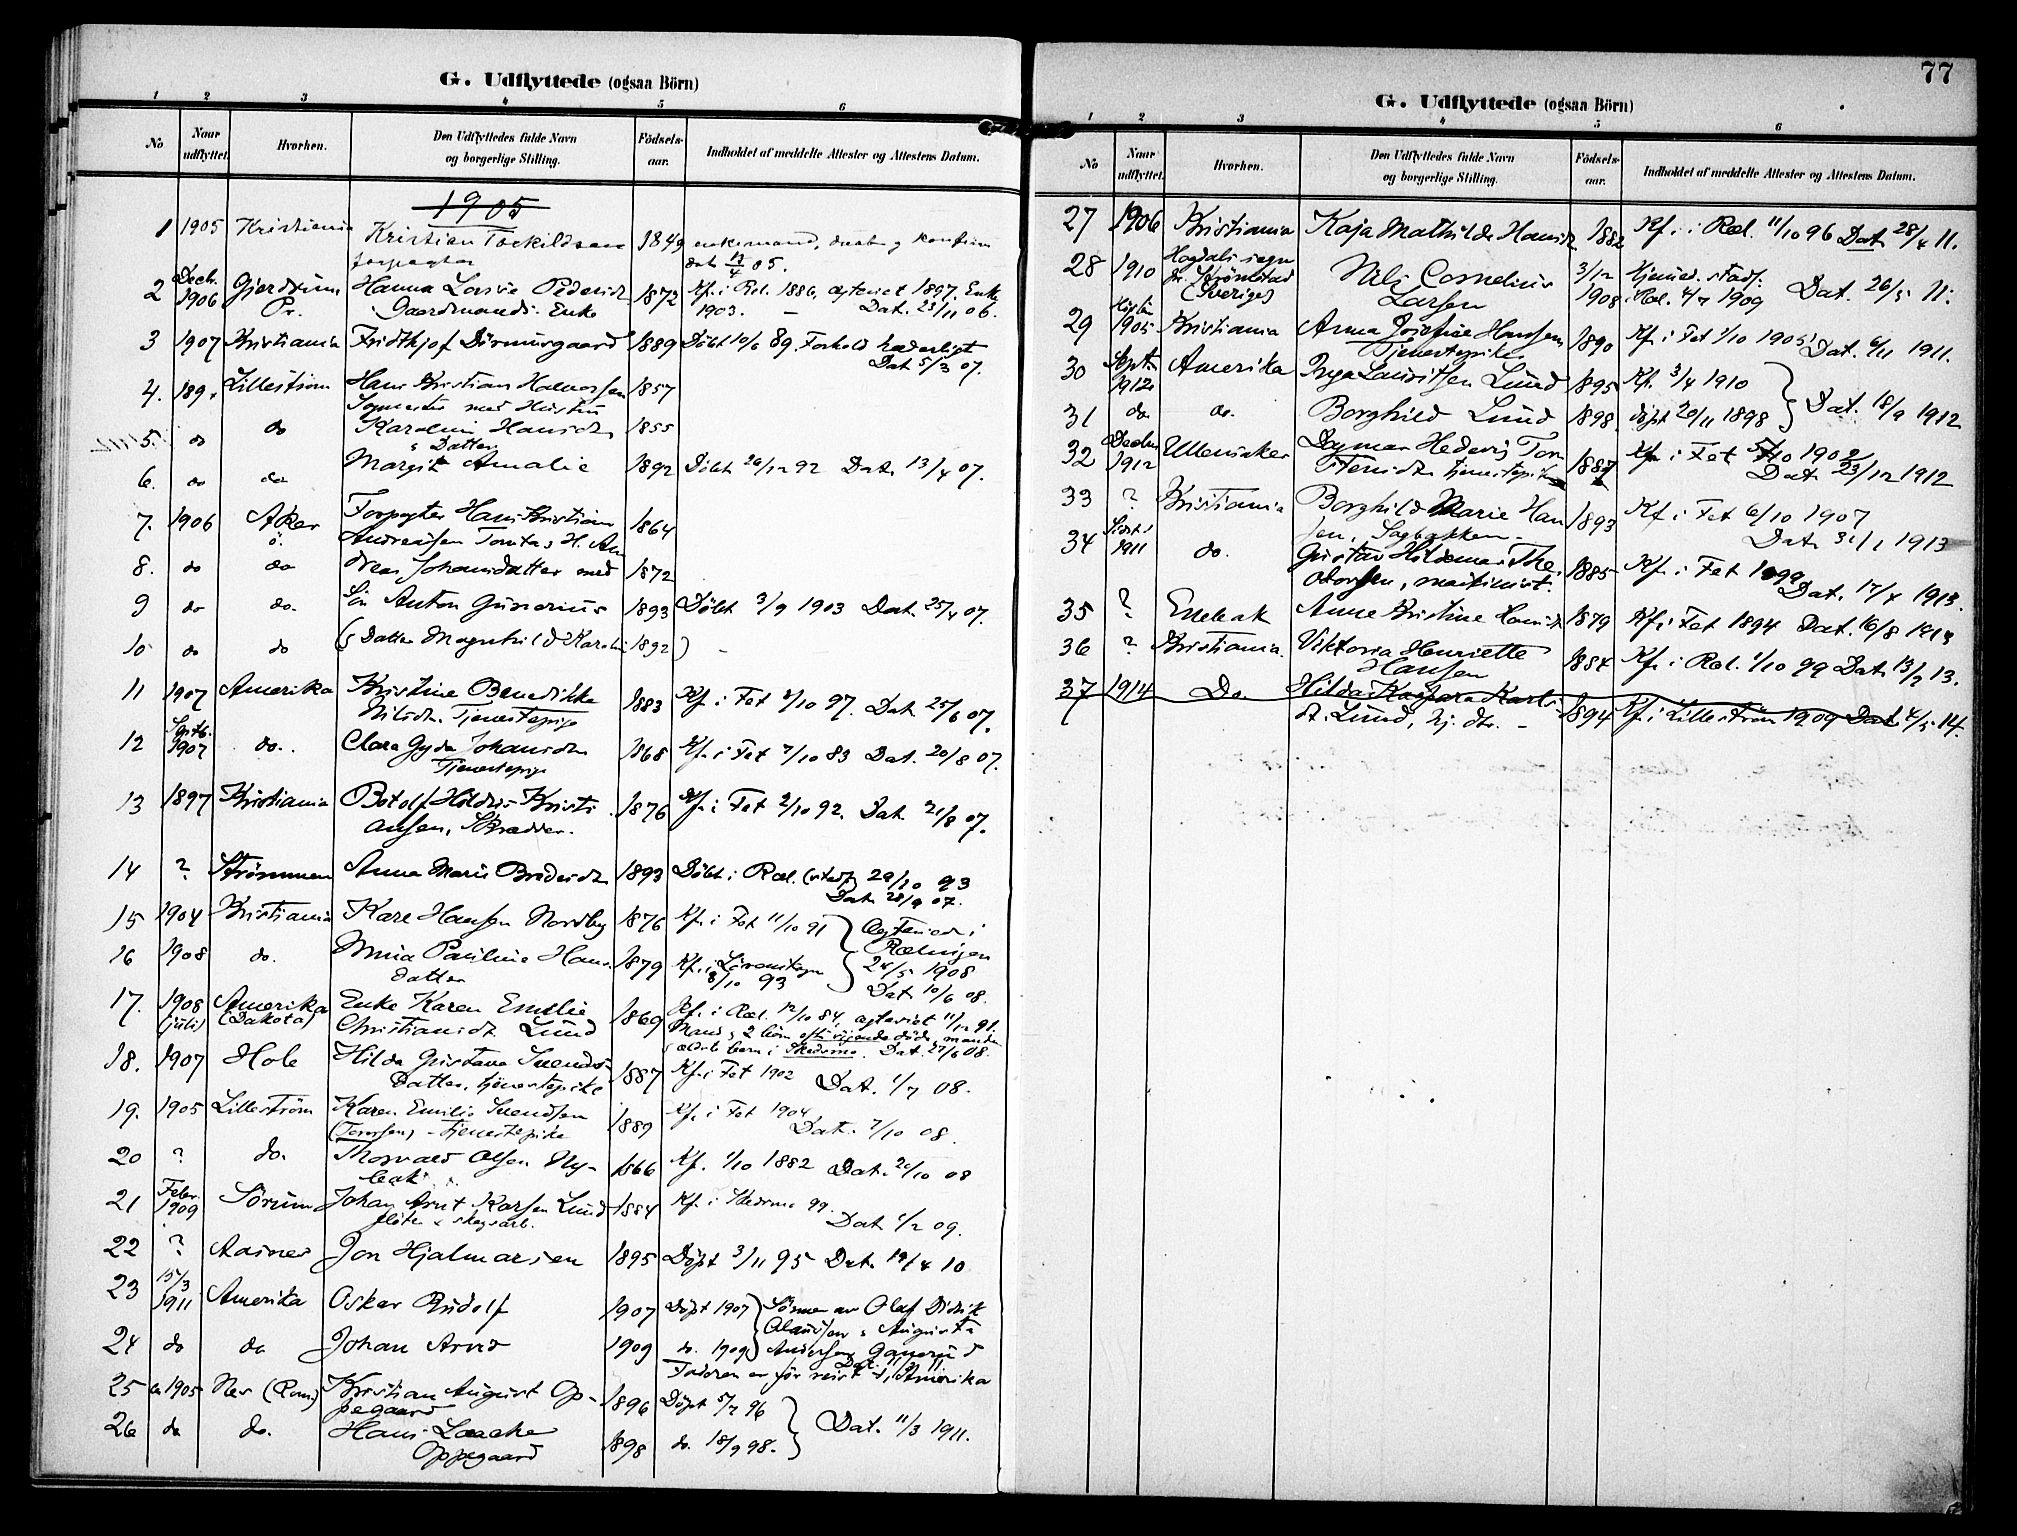 G. Udflyttede (ogsaa Börn)
1 2 3 4 5 6
No Naar udflyttet. Hvorhen. Den Udflyttedes fulde Navn og borgerlige Stilling. Födsels-aar. Indholdet af meddelte Attester og Attestens Datum.
1905
1 1905 Kristiania Kristian Torkildsen 1849 enkemand, døbt og konfirm
forpagter dat 13/4 05.
2 Decb. 1906 Gjerdrum Hanna Lovise Pedersdt. 1872 Kf. i Ræl. 1886, egteviet 1897. Enke
Pr. Gaardmands Enke 1903. – Dat. 23/11 06.
3 1907 Kristiania Fridthjof Dörmurgaard 1889 Döbt 10/6 89. Forhold hæderligt
Dat 5/3 07.
4. 189 Lilleström Hans Kristian Halvorsen 1857
Sagmester med Hustru
5. do do Karoline Hansdt. 1855
& Datter
6. do do Margit Amalie 1892 Döbt 26/12 92 Dat. 13/4 07.
7. 1906 Aker Forpagter Hans Kristian 1864
ö. Andreassen Tomtas H. An
8. do do dreas Johansdatter med 1872
9 do do. Sön Anton Gunerius 1893 Döbt 3/9 1903 Dat. 25/4 07.
10 do do (& Datter Magnhild Karoline 1892) –
11 1907 Amerika Kristine Benedikke 1883 Kf. i Fet 3/10 97. Dat. 25/6 07.
Nilsdt. Tjenestepige
12 Septb. 1907 do. Clara Gyda Johansdt. 1868 Kf. i Fet 7/10 83 Dat. 20/8 07.
Tjenestepige
13 1897 Kristiania Botolf Hildris Kristi 1876 Kf. i Fet 2/10 92. Dat. 21/8 07.
ansen, Skrædder.
14 ? Strömmen Anna Marie Bredesdt. 1893 Döbt i Ræl. (vteds) 29/10 93
Dat. 28/9 07.
15 1904 Kristiania Kare Hansen Nordby 1876 Kf. i Fet 11/10 91 Egteviede i
16 1908 do. Anna Pauline Hans 1879 Kf. i Rælingen
datter 8/10 93 24/5 1908
Dat 10/6 08.
17. 1908 Amerika Enke Karen Emilie 1869 Kf. i Ræl. 12/10 84, egteviet 11/12 91.
(juli) (Dakota) Christiansdt. Lund Mand & 2 börn efter sigende döde, manden
& ældste barn i Skedsmo. Dat. 27/6 08.
18. 1907 Hole Hilda Gustava Svends 1887 Kf. i Fet 1902 Dat. 1/7 08.
Datter, tjenestepike
19. 1905 Lilleström Karen Emilie Svendsen 1889 Kf. i Fet 1904
(Torersen) – tjenestepike Dat. 7/10 08.
20 ? do. Thorvald Olsen Ny- 1866 Kf. 1/10 1882 Dat. 20/10 08
bak
21 Febr. 1909 Sörum Johan Arnt Karlsen Lund 1884 Kf. i Skedsmo 99.
flöter & skogsarb. Dat 1/2 09.
22 ? Aasnes Jon Hjalmarsen 1895 Döpt 3/11 95 Dat. 19/4 10
23 15/3 1911 Amerika Oskar Rudolf 1907 Döpt 1907 Sönner av Olaf Didrik
Olaussen & Augusta
24 do do Johan Arvid 1909 do. 1909 Andersen Ganerud
Dat. 11/3 11.
Faderen er för reist t. Amerika
25 ca 1905 Nes (Rom.) Kristian August Op- 1896 Döpt 5/7 96
pegaard
26 do do. Hans Laache 1898 do. 18/9 98. Dat. 11/3 1911.
Oppegaard
77
G. Udflyttede (ogsaa Börn)
1 2 3 4 5 6
No Naar udflyttet. Hvorhen. Den Udflyttedes fulde Navn og borgerlige Stilling. Födsels-aar. Indholdet af meddelte Attester og Attestens Datum.
27 1906 Kristiania Kaja Mathilde Hansdt. 1882 Kf. i Ræl. 11/10 96 Dat. 28/4 11.
28 1910 Hogdals sogn Nils Cornelius 3/12 Hjemmed. stadf.
pr. Strömstad Larsen 1908 i Ræl. 4/7 1909 Dat. 26/5 11.
(Sverige)
29 1905 Kristiania Anna Josefine Hansen 1890 Kf. i Fet 1/10 1905 Dat. 6/11 1911.
Tjenestepike
30 Sept. 1912 Amerika Inga Lauritsen Lund 1895 Kf. 3/4 1910
31 do do. Borghild Lund 1898 döpt 20/11 1898 Dat. 18/9 1912
32 Decbr. 1912 Ullensaker Dagmar Hedevig Tor 1887 Kf. i Fet 5/10 1902
stensdt. tjenestepike Dat. 23/12 1912
33 ? Kristiania Borghild Marie Han 1893 Kf. i Fet 6/10 1907
sen, Sagbakken – Dat. 31/1 1913
34 Sidst i 1911 do. Gustav Hildemar The 1885 Kf. i Fet 1899
odorsen, maskinist. Dat. 17/4 1913.
35 ? Enebak Anne Kristine Hansdt. 1879 Kf. i Fet 1894 Dat. 16/8 1913
36 ? Kristiania. Viktoria Henriette 1884 Kf. i Ræl. 1/10 99 Dat. 13/9 13.
Hansen
37 1914 Do. Hilda Kaspara Karls- 1894 Kf. i Lilleström 1909 Dat. 4/5 14.
dt. Lund, hj. dtr. –